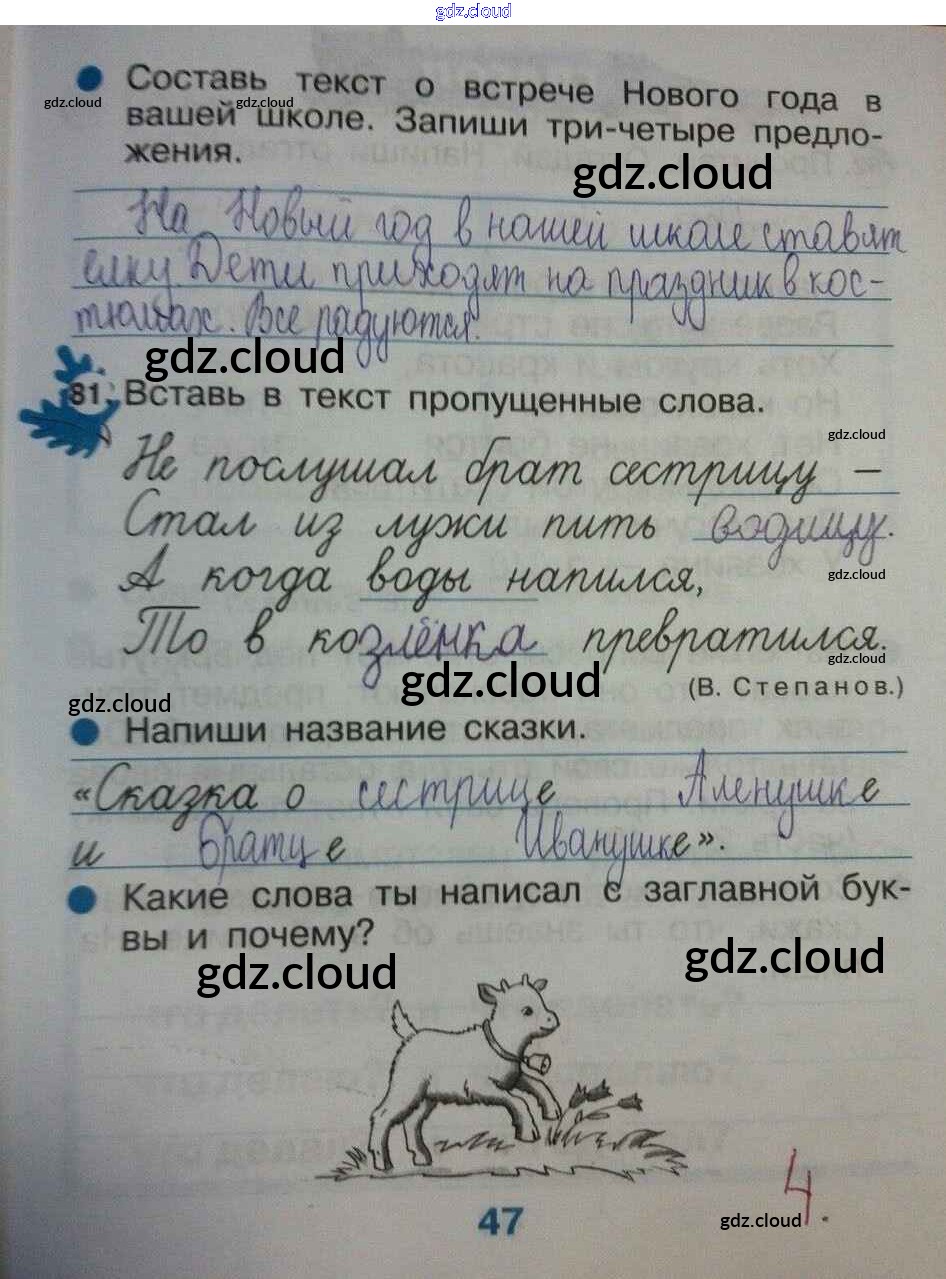 gdz.cloud
Составь текст о встрече Нового года в
gdz.cloud gdz.cloud
вашей школе. Запиши три-четыре предло-
жения.
gdz.cloud
На Новый год в нашей школе ставят
елку Дети приходят на праздник в кос-
тюмах. Все радуются.
gdz.cloud
81. Вставь в текст пропущенные слова.
gdz.cloud
Не послушал брат сестрицу –
Стал из лужи пить водицу.
gdz.cloud
А когда воды напился,
То в козлёнка превратился.
gdz.cloud
gdz.cloud
(В. Степанов.)
gdz.cloud
Напиши название сказки.
«Сказка о сестрице Аленушке
и братце Иванушке».
Какие слова ты написал с заглавной бук-
вы и почему?
gdz.cloud
gdz.cloud
4.
47
gdz.cloud